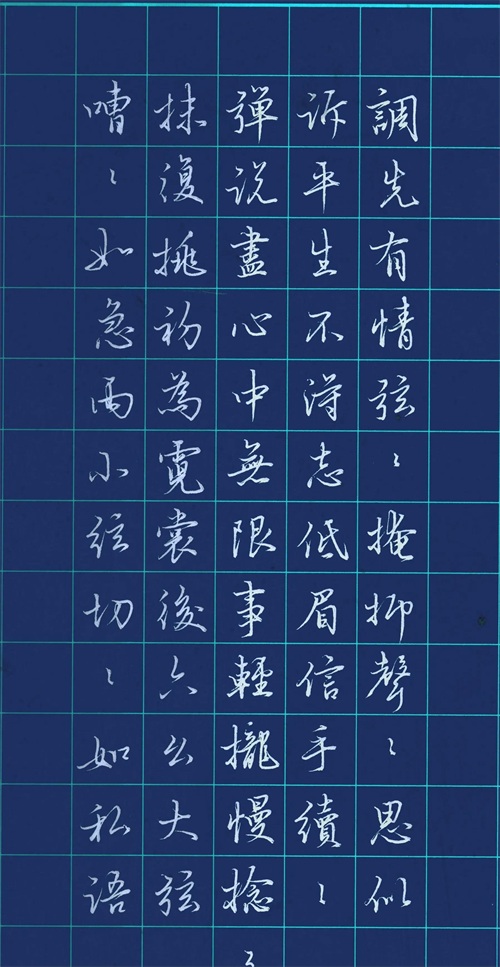 調先有情弦〻掩抑聲〻思似
诉平生不得志低眉信手續〻
彈说盡心中無限事輕攏慢捻〻
抹復挑初為霓裳後六么大弦
嘈〻如急雨小絃切〻如私語